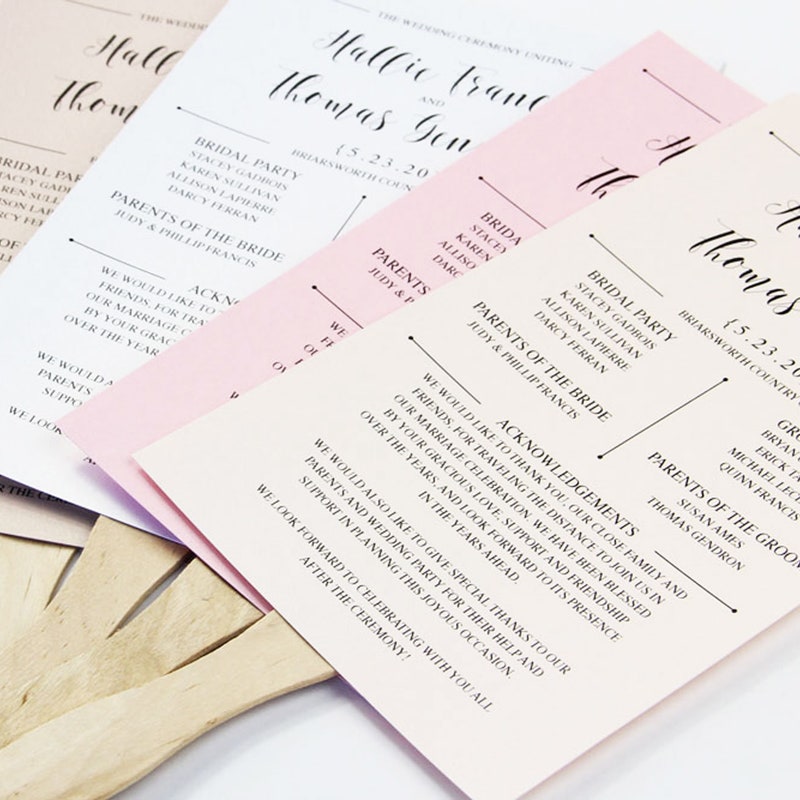 THE WEDDING CEREMONY UNITING
Hallie Franc
AND
Thomas Gen
{5.23.20
BRIARSWORTH COUNT
BRIDAL PARTY
STACEY GADBOIS
KAREN SULLIVAN
ALLISON LAPIERRE
DARCY FERRAN
PARENTS OF THE BRIDE
JUDY & PHILLIP FRANCIS
ACKNO
WE WOULD LIKE TO
FRIENDS, FOR TRAVE
OUR MARRIAGE CELEB
BY YOUR GRACIOU
OVER THE YEAR
WE WOULD A
PARENTS
SUPPO
WE LOOK
THE WEDD
Hall
Thom
BRIDAL PAR
STACEY GADB
KAREN SULL
ALLISON LAPIER
DARCY FERRA
BRIDAL
STACEY
KAREN
ALLISO
DARC
PARENTS
JUDY & P
WE WOUL
FRIENDS
OUR
BY
OVE
Thomas
{5.23.20
BRIARSWORTH COUNTRY C
BRIDAL PARTY
STACEY GADBOIS
KAREN SULLIVAN
ALLISON LAPIERRE
DARCY FERRAN
PARENTS OF THE BRIDE
JUDY & PHILLIP FRANCIS
GRO
BRYAN
ERICK T
MICHAEL LEC
QUINN FRANCIS
PARENTS OF THE GROOM
SUSAN AMES
THOMAS GENDRON
ACKNOWLEDGEMENTS
WE WOULD LIKE TO THANK YOU, OUR CLOSE FAMILY AND
FRIENDS, FOR TRAVELING THE DISTANCE TO JOIN US IN
OUR MARRIAGE CELEBRATION. WE HAVE BEEN BLESSED
BY YOUR GRACIOUS LOVE, SUPPORT AND FRIENDSHIP
OVER THE YEARS, AND LOOK FORWARD TO ITS PRESENCE
IN THE YEARS AHEAD.
WE WOULD ALSO LIKE TO GIVE SPECIAL THANKS TO OUR
PARENTS AND WEDDING PARTY FOR THEIR HELP AND
SUPPORT IN PLANNING THIS JOYOUS OCCASION.
WE LOOK FORWARD TO CELEBRATING WITH YOU ALL
AFTER THE CEREMONY!